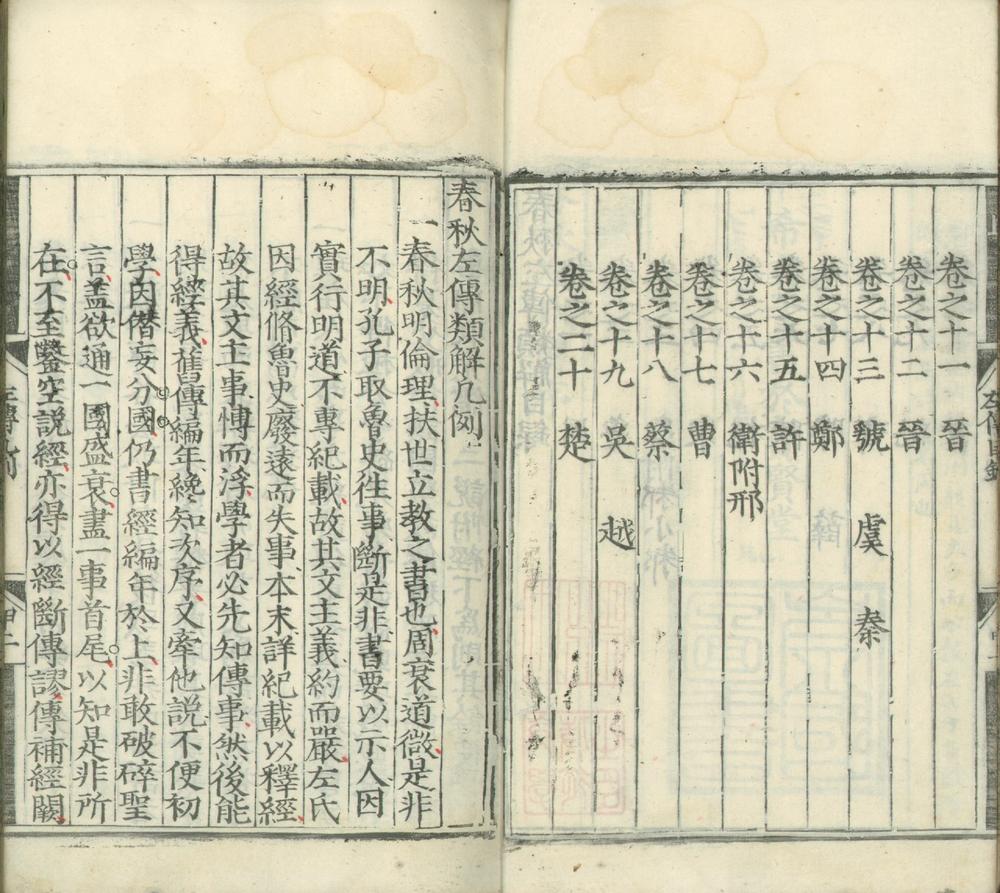 卷之十一 晉
卷之十二 晉
卷之十三 虢 虞 秦
卷之十四 鄭
卷之十五 許
卷之十六 衛附邢
卷之十七 曹
卷之十八 蔡
卷之十九 吳 越
卷之二十 楚
春秋左傳類解凡例
一春秋明倫理扶世立教之書也周衰道微是非
不明孔子取魯史徃事斷是非書要以示人因
實行明道不專紀載故其文主義約而嚴左氏
因經脩魯史廢遠而失事本末詳紀載以釋經
故其文主事慱而浮學者必先知傳事然後能
得經義舊傳編年纔知次序又牽他説不便初
學因僭妄分國仍書經編年於上非敢破碎聖
言盖欲通一國盛衰盡一事首尾以知是非所
在不至鑿空説經亦得以經斷傳謬傳補經闕